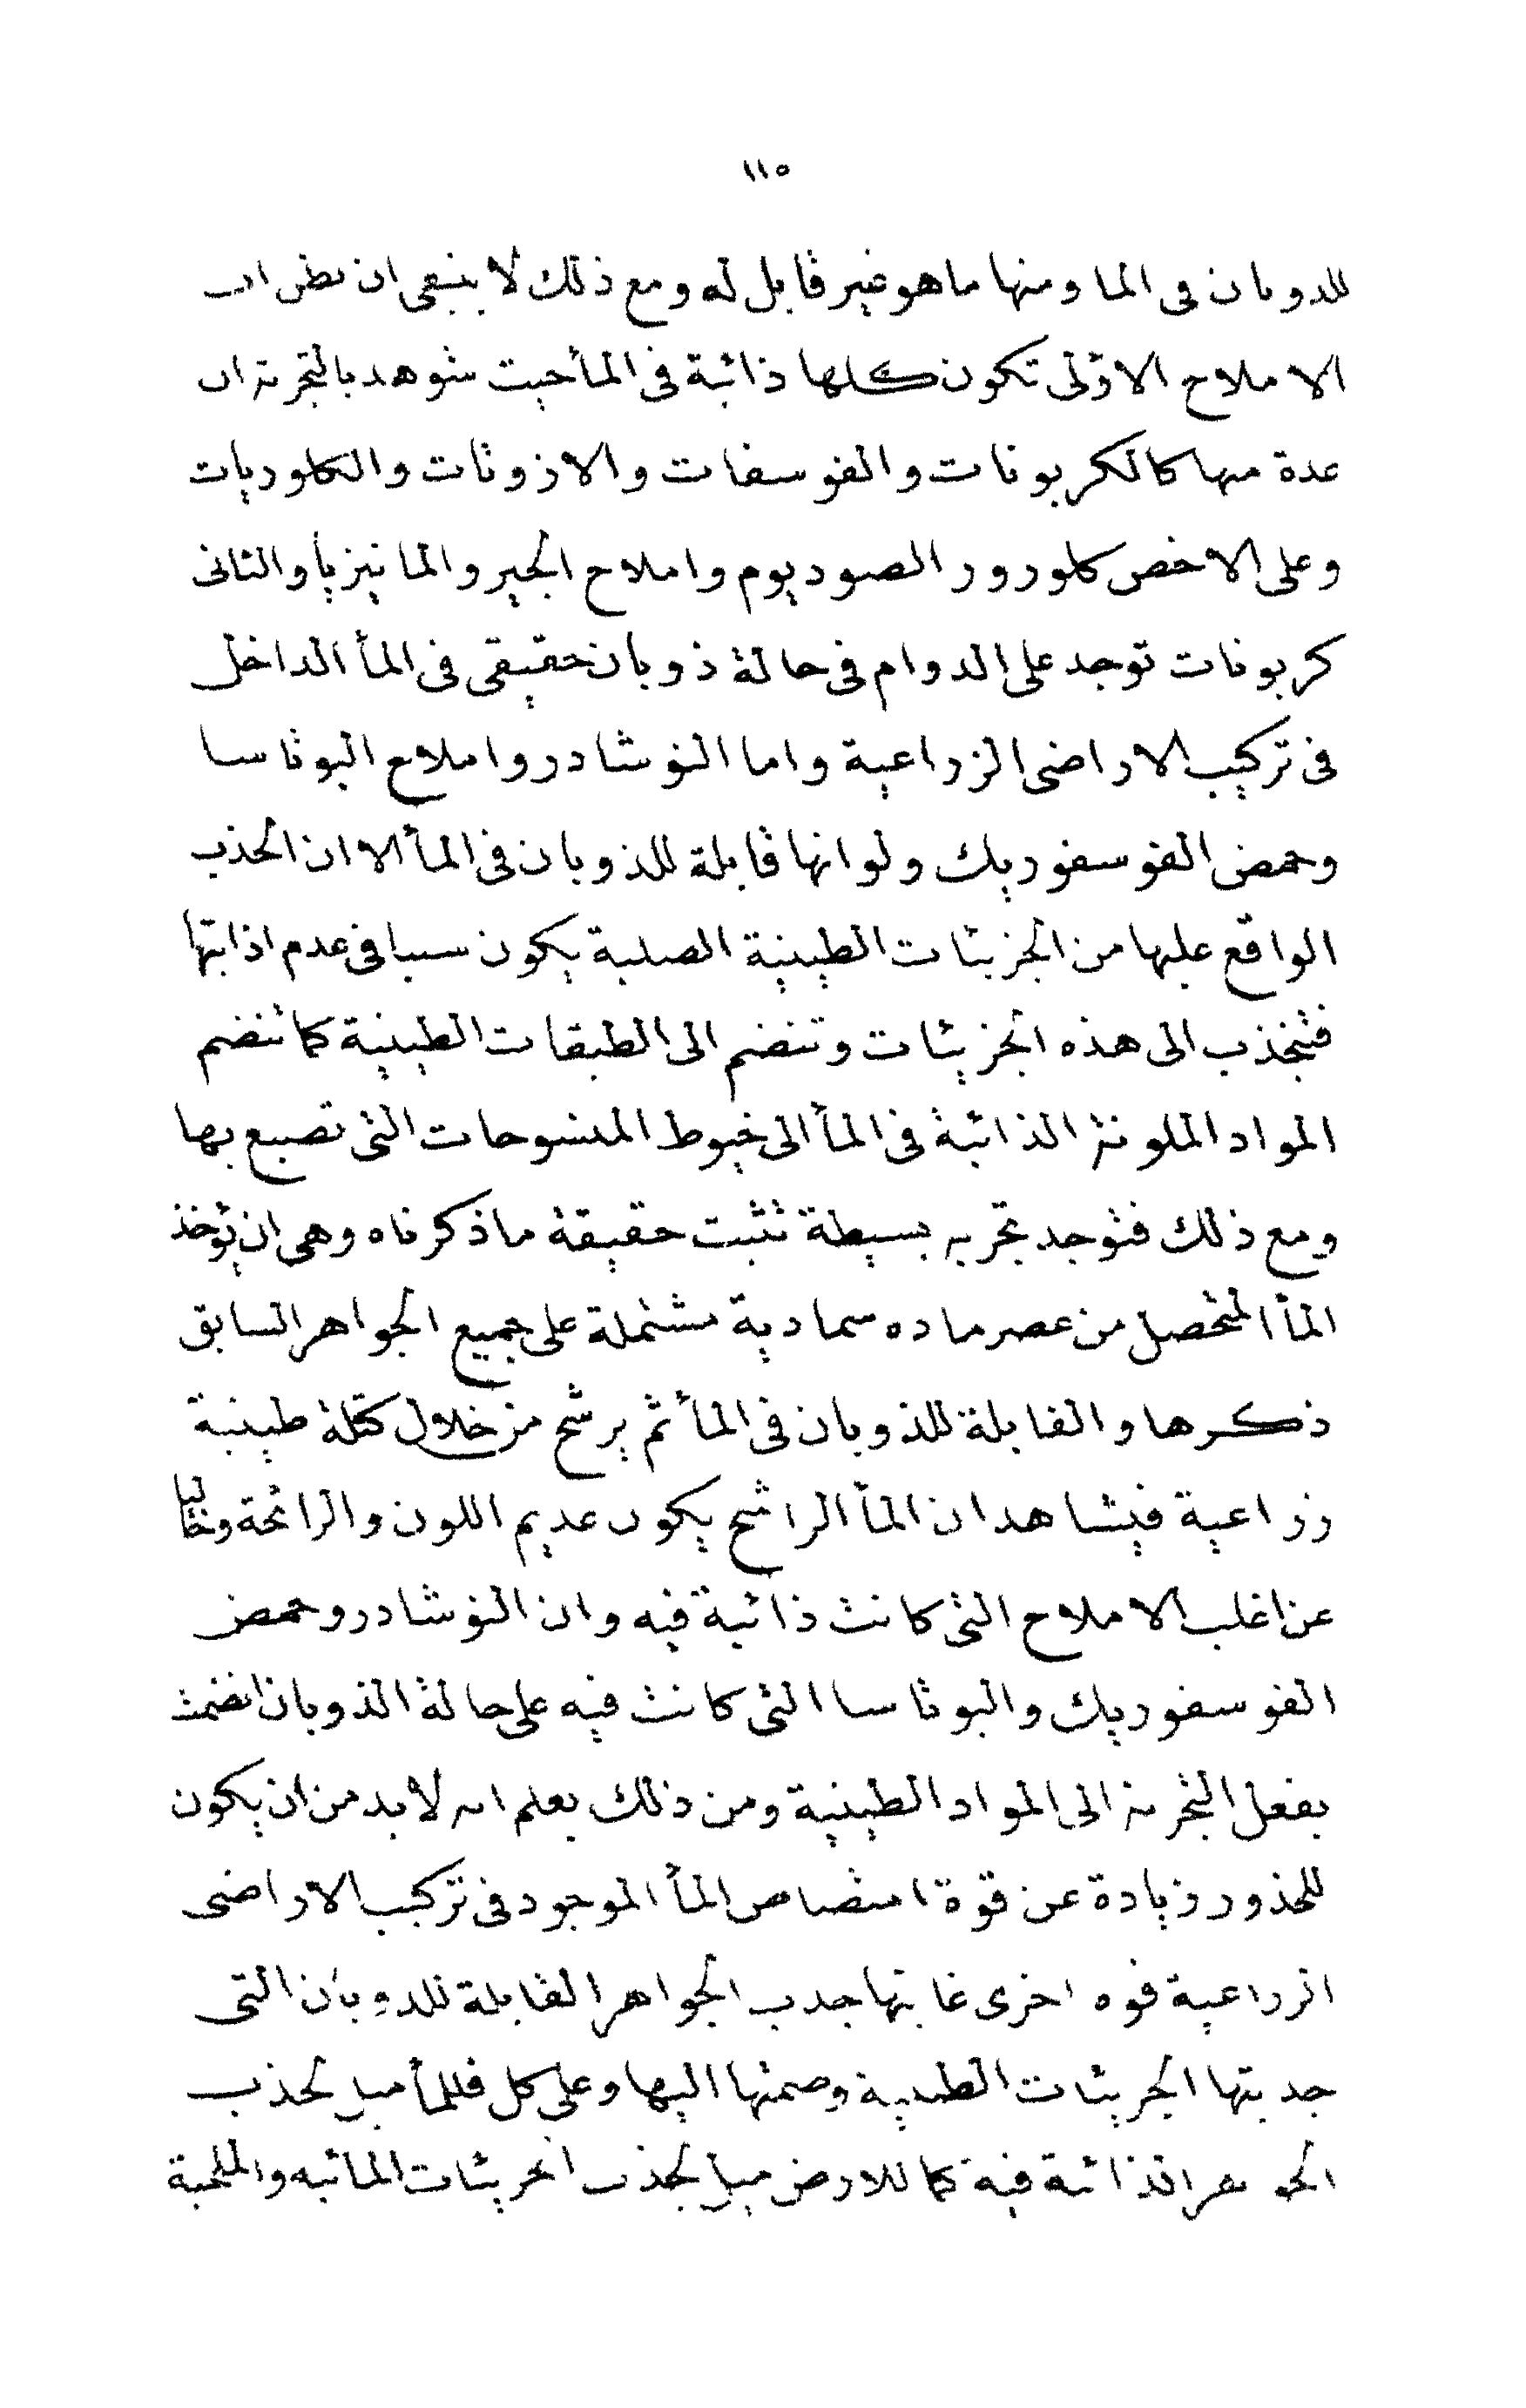 ١١٥
للذوبان فى الما ومنها ما هو غير قابل له ومع ذلك لا ينبغى ان يظن ان
الاملاح الاولى تكون كلها ذائبة فى المأ حيت شوهد بالتجربة ان
عدة منها كالكربونات والفوسفات والازوتات والكلوريات
وعلى الاخص كلورور الصوديوم واملاح الجير والمانيزيا والثانى
كربونات توجد على الدوام فى حالة ذوبان حقيقى فى المأ الداخل
فى تركيب الاراضى الزراعية واما النوشادر واملاح البوتاسا
وحمض الفوسفوريك ولو انها قابلة للذوبان فى المأ الا ان الجذب
الواقع عليها من الجزيئات الطينية الصلبة يكون سببا فى عدم اذابتها
فتنجذب الى هذه الجزيئات وتنضم الى الطبقات الطينية كما تنضم
المواد الملونة الذائبة فى المأ الى خيوط المنسوجات التى تصبغ بها
ومع ذلك فتوجد تجربه بسيطة تثبت حقيقة ما ذكرناه وهى ان يؤخذ
المأ المتحصل من عصر ماده سمادية مشتملة على جميع الجواهر السابق
ذكرها والقابلة للذوبان فى المأ ثم يرشح من خلال كتلة طينية
زراعية فيشاهد ان المأ الراشح يكون عديم اللون والرائحة وخاليا
عن اغلب الاملاح التى كانت ذائبة فيه وان النوشادر وحمض
الفوسفوريك والبوتاسا التى كانت فيه على حالة الذوبان انضمت
بفعل التجربة الى المواد الطينية ومن ذلك يعلم انه لا بد من ان يكون
للجذور زيادة عن قوة امتصاص المأ الموجود فى تركيب الاراضى
الزراعية قوه اخرى غايتها جذب الجواهر القابلة للذوبان التى
جذبتها الجزيئات الطينية وضمتها اليها وعلى كل فللمأ ميل لجذب
الجواهر الذائبة فيه كما للارض ميل لجذب الجزيئات المائيه والملحية